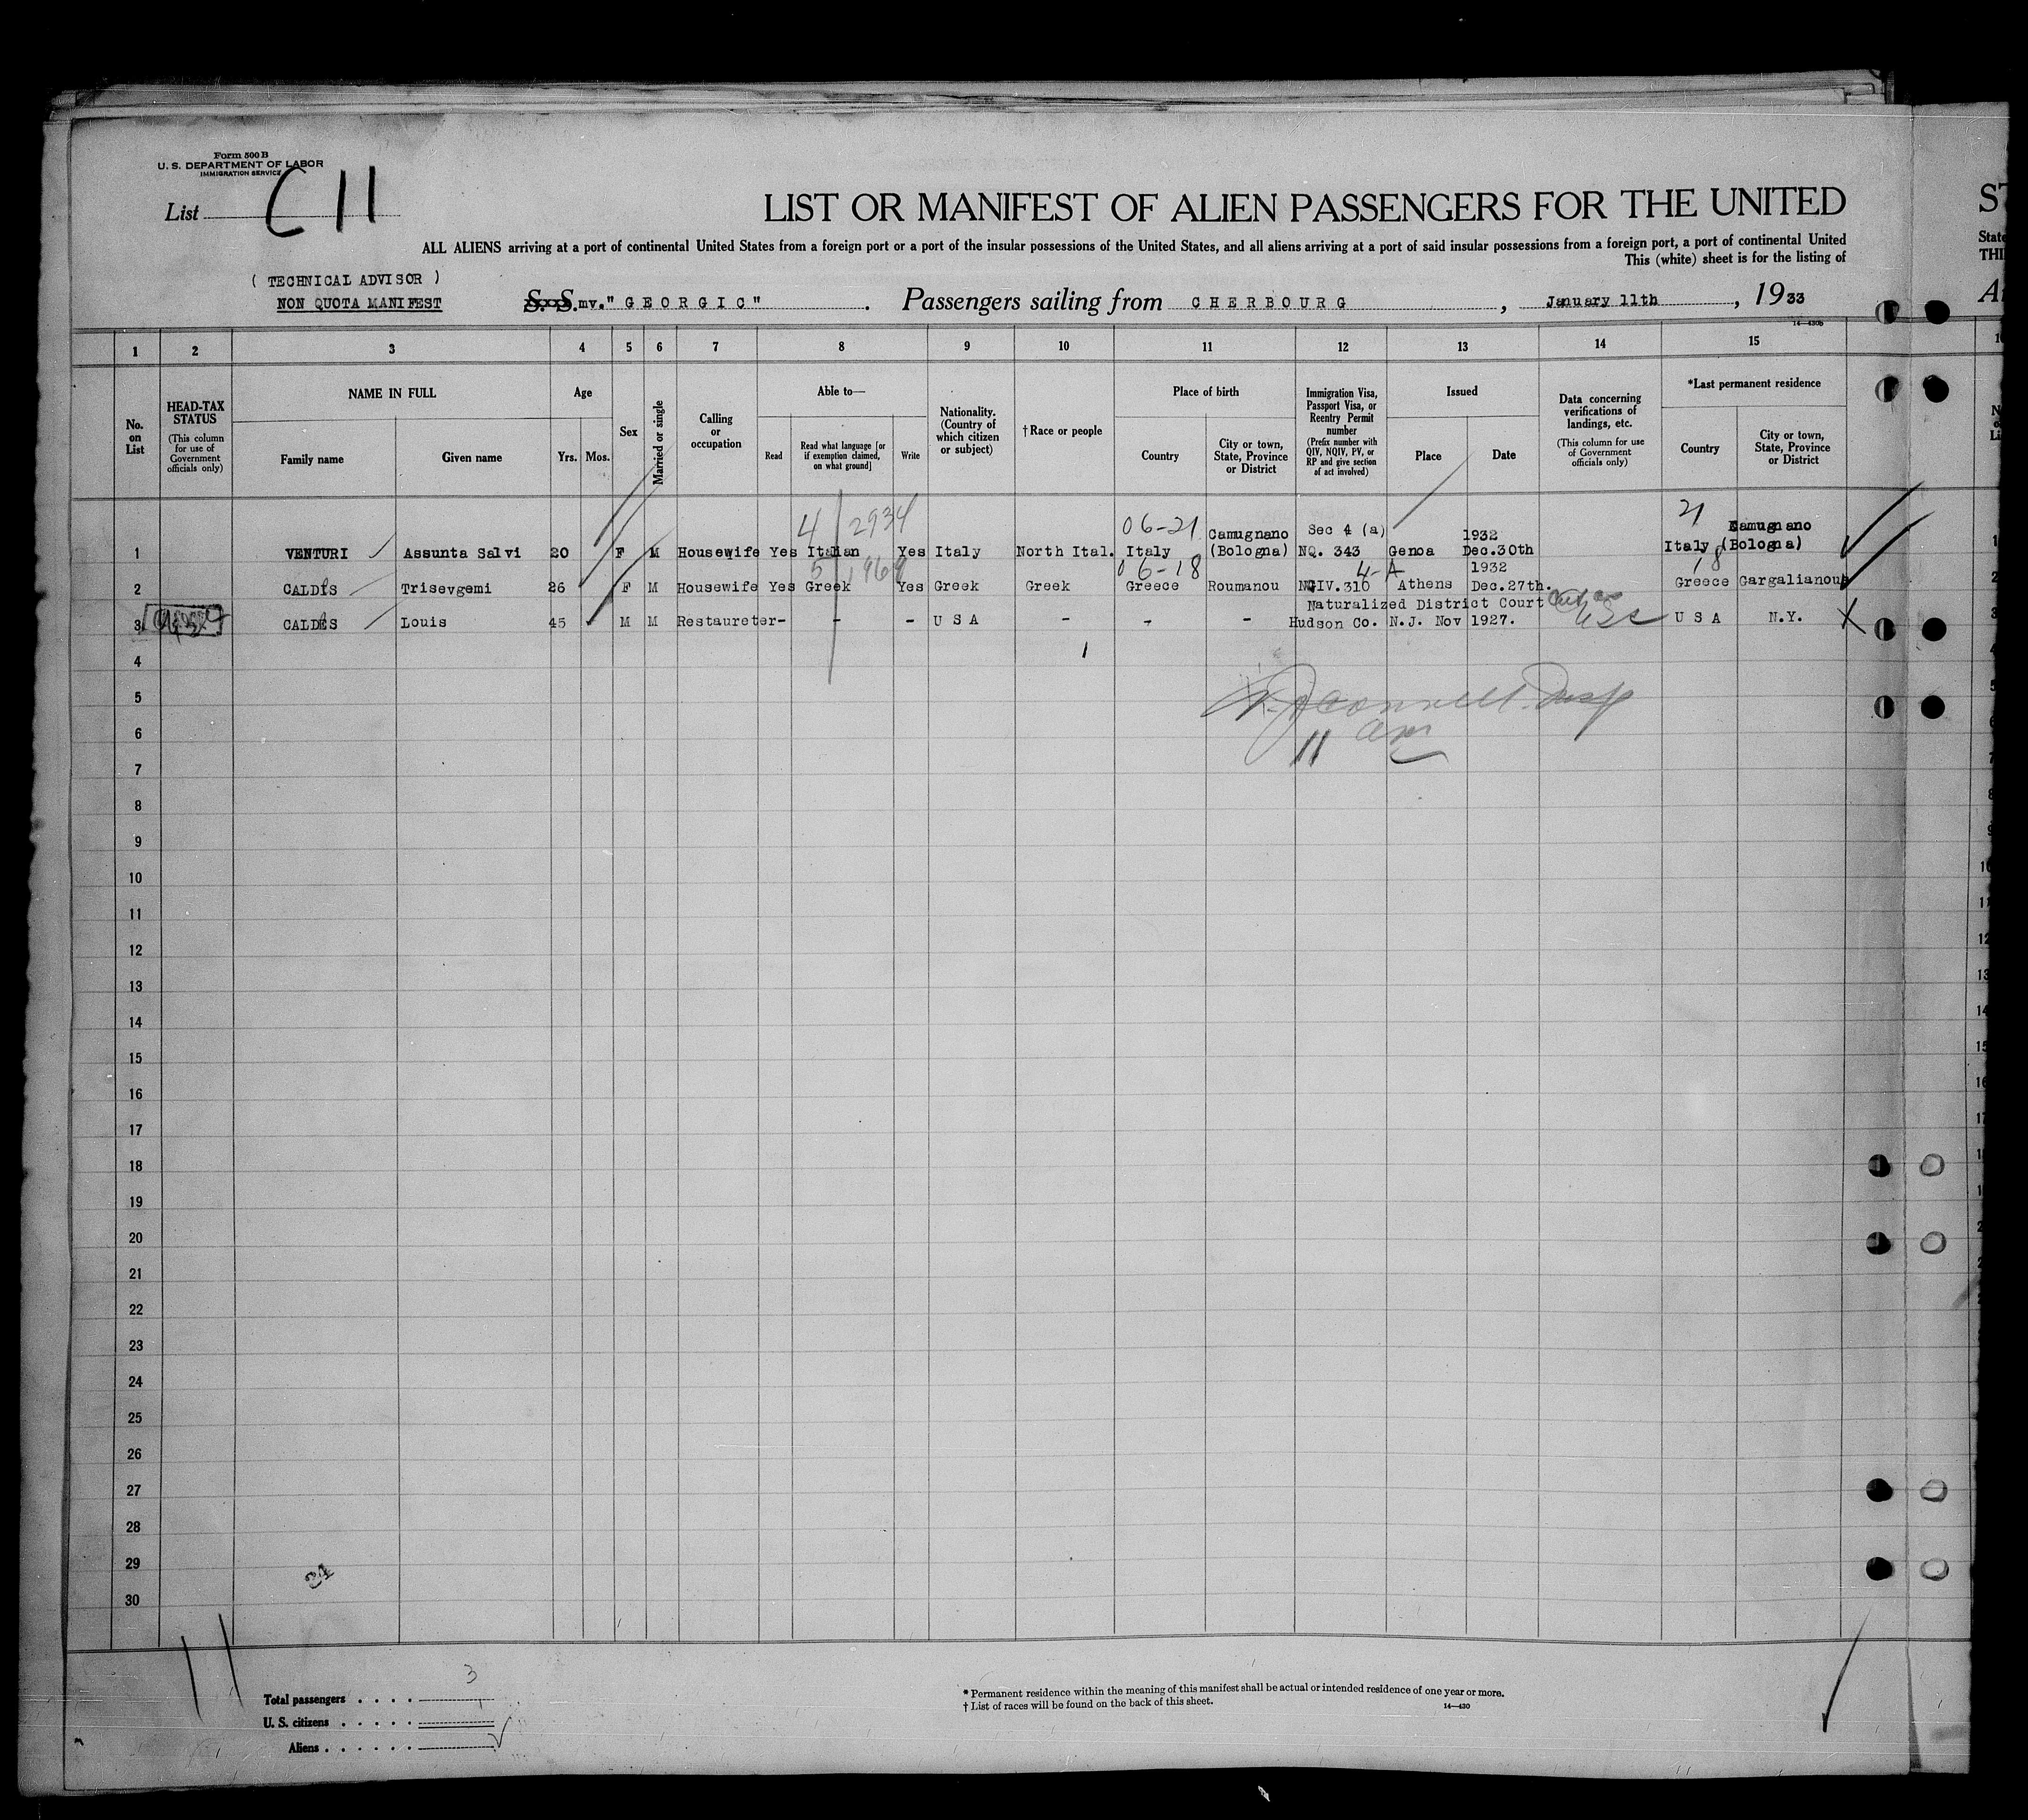 Form 500 B
U. S. DEPARTMENT OF LABOR
IMMIGRATION SERVICE
List C 11
LIST OR MANIFEST OF ALIEN PASSENGERS FOR THE UNITED
ST
ALL ALIENS arriving at a port of continental United States from a foreign port or a port of the insular possessions of the United States, and all aliens arriving at a port of said insular possessions from a foreign port, a port of continental United
State
This (white) sheet is for the listing of
THI
( TECHNICAL ADVISOR )
NON QUOTA MANIFEST
S. S. mv. " G E O R G I C " . Passengers sailing from C H E R B O U R G , January 11th , 19 33
14—430B
1 2 3 4 5 6 7 8 9 10 11 12 13 14 15
No. on List
HEAD-TAX STATUS
(This column for use of Government officials only)
NAME IN FULL
Family name
Given name
Age
Yrs. Mos.
Sex
Married or single
Calling or occupation
Able to—
Read
Read what language [or if exemption claimed, on what ground]
Write
Nationality. (Country of which citizen or subject)
†Race or people
Place of birth
Country
City or town, State, Province or District
Immigration Visa, Passport Visa, or Reentry Permit number
(Prefix number with QIV, NQIV, PV, or RP and give section of act involved)
Issued
Place
Date
Data concerning verifications of landings, etc.
(This column for use of Government officials only)
*Last permanent residence
Country
City or town, State, Province or District
4 2934 06-21 Camugnano Sec 4 (a) 1932 21 Camugnano
1 VENTURI Assunta Salvi 20 F M Housewife Yes Italian Yes Italy North Ital. Italy (Bologna) NQ. 343 Genoa Dec.30th Italy (Bologna)
5 1969 06-18 4-A 1932 18
2 CALDIS Trisevgemi 26 F M Housewife Yes Greek Yes Greek Greek Greece Roumanou NQIV.310 Athens Dec.27th. Greece Gargalianou
Naturalized District Court
3 CALDIS Louis 45 M M Restaureter - - - U S A - - - Hudson Co. N.J. Nov 1927. USC U S A N.Y. X
4
5
6
7
8
9
10
11
12
13
14
15
16
17
18
19
20
21
22
23
24
25
26
27
28
29
30
11
24
Total passengers . . . . 3
U. S. citizens . . . . .
Aliens . . . . . .
* Permanent residence within the meaning of this manifest shall be actual or intended residence of one year or more.
† List of races will be found on the back of this sheet.
14—430